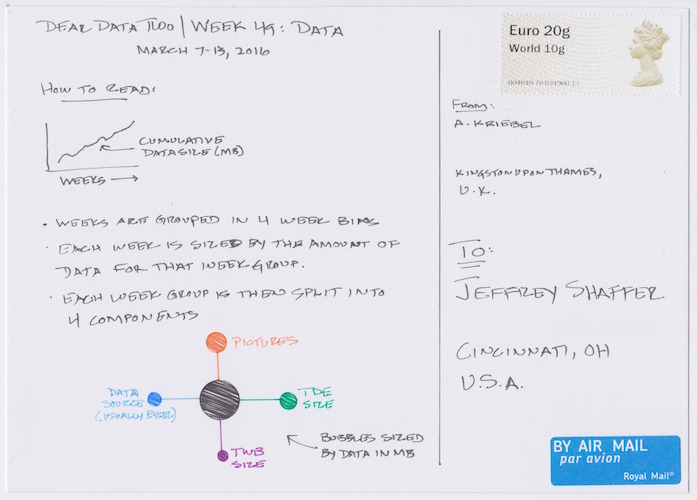 DEAR DATA TWO | WEEK 49: DATA
MARCH 7-13, 2016
HOW TO READ:
CUMULATIVE
DATA SIZE (MB)
WEEKS
• WEEKS ARE GROUPED IN 4 WEEK BINS
• EACH WEEK IS SIZED BY THE AMOUNT OF
DATA FOR THAT WEEK GROUP.
• EACH WEEK GROUP IS THEN SPLIT INTO
4 COMPONENTS
PICTURES
DATA
SOURCE
(USUALLY EXCEL)
TDE
SIZE
TWB
SIZE
BUBBLES SIZED
BY DATA IN MB
Euro 20g
World 10g
FROM:
A. KRIEBEL
KINGSTON UPON THAMES,
U.K.
TO:
JEFFREY SHAFFER
CINCINNATI, OH
U.S.A.
BY AIR MAIL
par avion
Royal Mail®